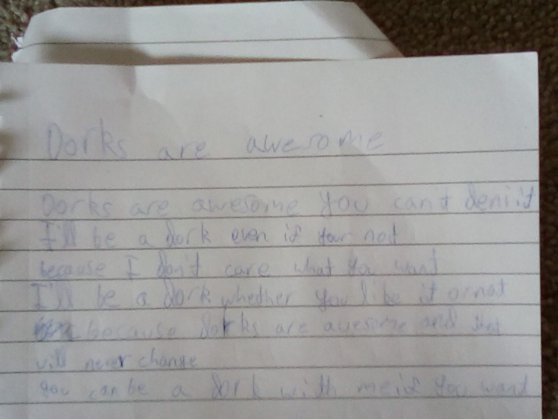 Dorks are awesome
Dorks are awesome you can't deni it
I'll be a dork even if your not
because I don't care what you want
I'll be a dork whether you like it or not
because dorks are awesome and that
will never change
You can be a dork with me if you want